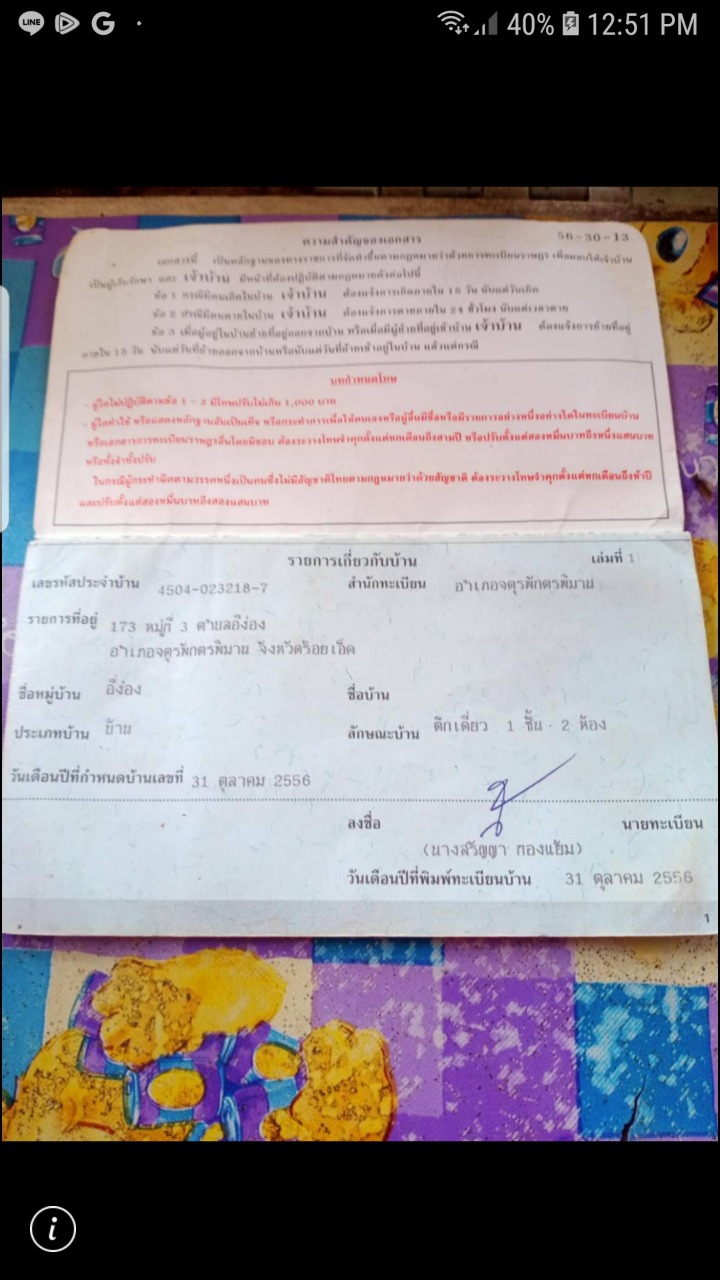 LINE G 40% 12:51 PM
ความสำคัญของเอกสาร 56-30-13
เอกสารนี้ เป็นหลักฐานของทางราชการที่จัดทำขึ้นตามกฎหมายว่าด้วยการทะเบียนราษฎร เพื่อมอบให้เจ้าบ้าน
เป็นผู้เก็บรักษา และ เจ้าบ้าน มีหน้าที่ต้องปฏิบัติตามกฎหมายดังต่อไปนี้
ข้อ 1 กรณีมีคนเกิดในบ้าน เจ้าบ้าน ต้องแจ้งการเกิดภายใน 15 วัน นับแต่วันเกิด
ข้อ 2 กรณีมีคนตายในบ้าน เจ้าบ้าน ต้องแจ้งการตายภายใน 24 ชั่วโมง นับแต่เวลาตาย
ข้อ 3 เมื่อผู้อยู่ในบ้านย้ายที่อยู่ออกจากบ้าน หรือเมื่อมีผู้ย้ายที่อยู่เข้าบ้าน เจ้าบ้าน ต้องแจ้งการย้ายที่อยู่
ภายใน 15 วัน นับแต่วันที่ย้ายออกจากบ้านหรือนับแต่วันที่ย้ายเข้าอยู่ในบ้าน แล้วแต่กรณี
บทกำหนดโทษ
- ผู้ใดไม่ปฏิบัติตามข้อ 1 - 3 มีโทษปรับไม่เกิน 1,000 บาท
- ผู้ใดทำใช้ หรือแสดงหลักฐานอันเป็นเท็จ หรือกระทำการเพื่อให้ตนเองหรือผู้อื่นมีชื่อหรือมีรายการอย่างหนึ่งอย่างใดในทะเบียนบ้าน
หรือเอกสารการทะเบียนราษฎรอื่นโดยมิชอบ ต้องระวางโทษจำคุกตั้งแต่หกเดือนถึงสามปี หรือปรับตั้งแต่สองหมื่นบาทถึงหนึ่งแสนบาท
หรือทั้งจำทั้งปรับ
ในกรณีผู้กระทำผิดตามวรรคหนึ่งเป็นคนซึ่งไม่มีสัญชาติไทยตามกฎหมายว่าด้วยสัญชาติ ต้องระวางโทษจำคุกตั้งแต่หกเดือนถึงห้าปี
และปรับตั้งแต่สองหมื่นบาทถึงสองแสนบาท
รายการเกี่ยวกับบ้าน เล่มที่ 1
เลขรหัสประจำบ้าน 4504-023218-7 สำนักทะเบียน อำเภอจตุรพักตรพิมาน
รายการที่อยู่ 173 หมู่ที่ 3 ตำบลอีง่อง
อำเภอจตุรพักตรพิมาน จังหวัดร้อยเอ็ด
ชื่อหมู่บ้าน อีง่อง ชื่อบ้าน
ประเภทบ้าน บ้าน ลักษณะบ้าน ตึกเดี่ยว 1 ชั้น 2 ห้อง
วันเดือนปีที่กำหนดบ้านเลขที่ 31 ตุลาคม 2556
ลงชื่อ นายทะเบียน
(นางสรัญญา ทองแย้ม)
วันเดือนปีที่พิมพ์ทะเบียนบ้าน 31 ตุลาคม 2556
1